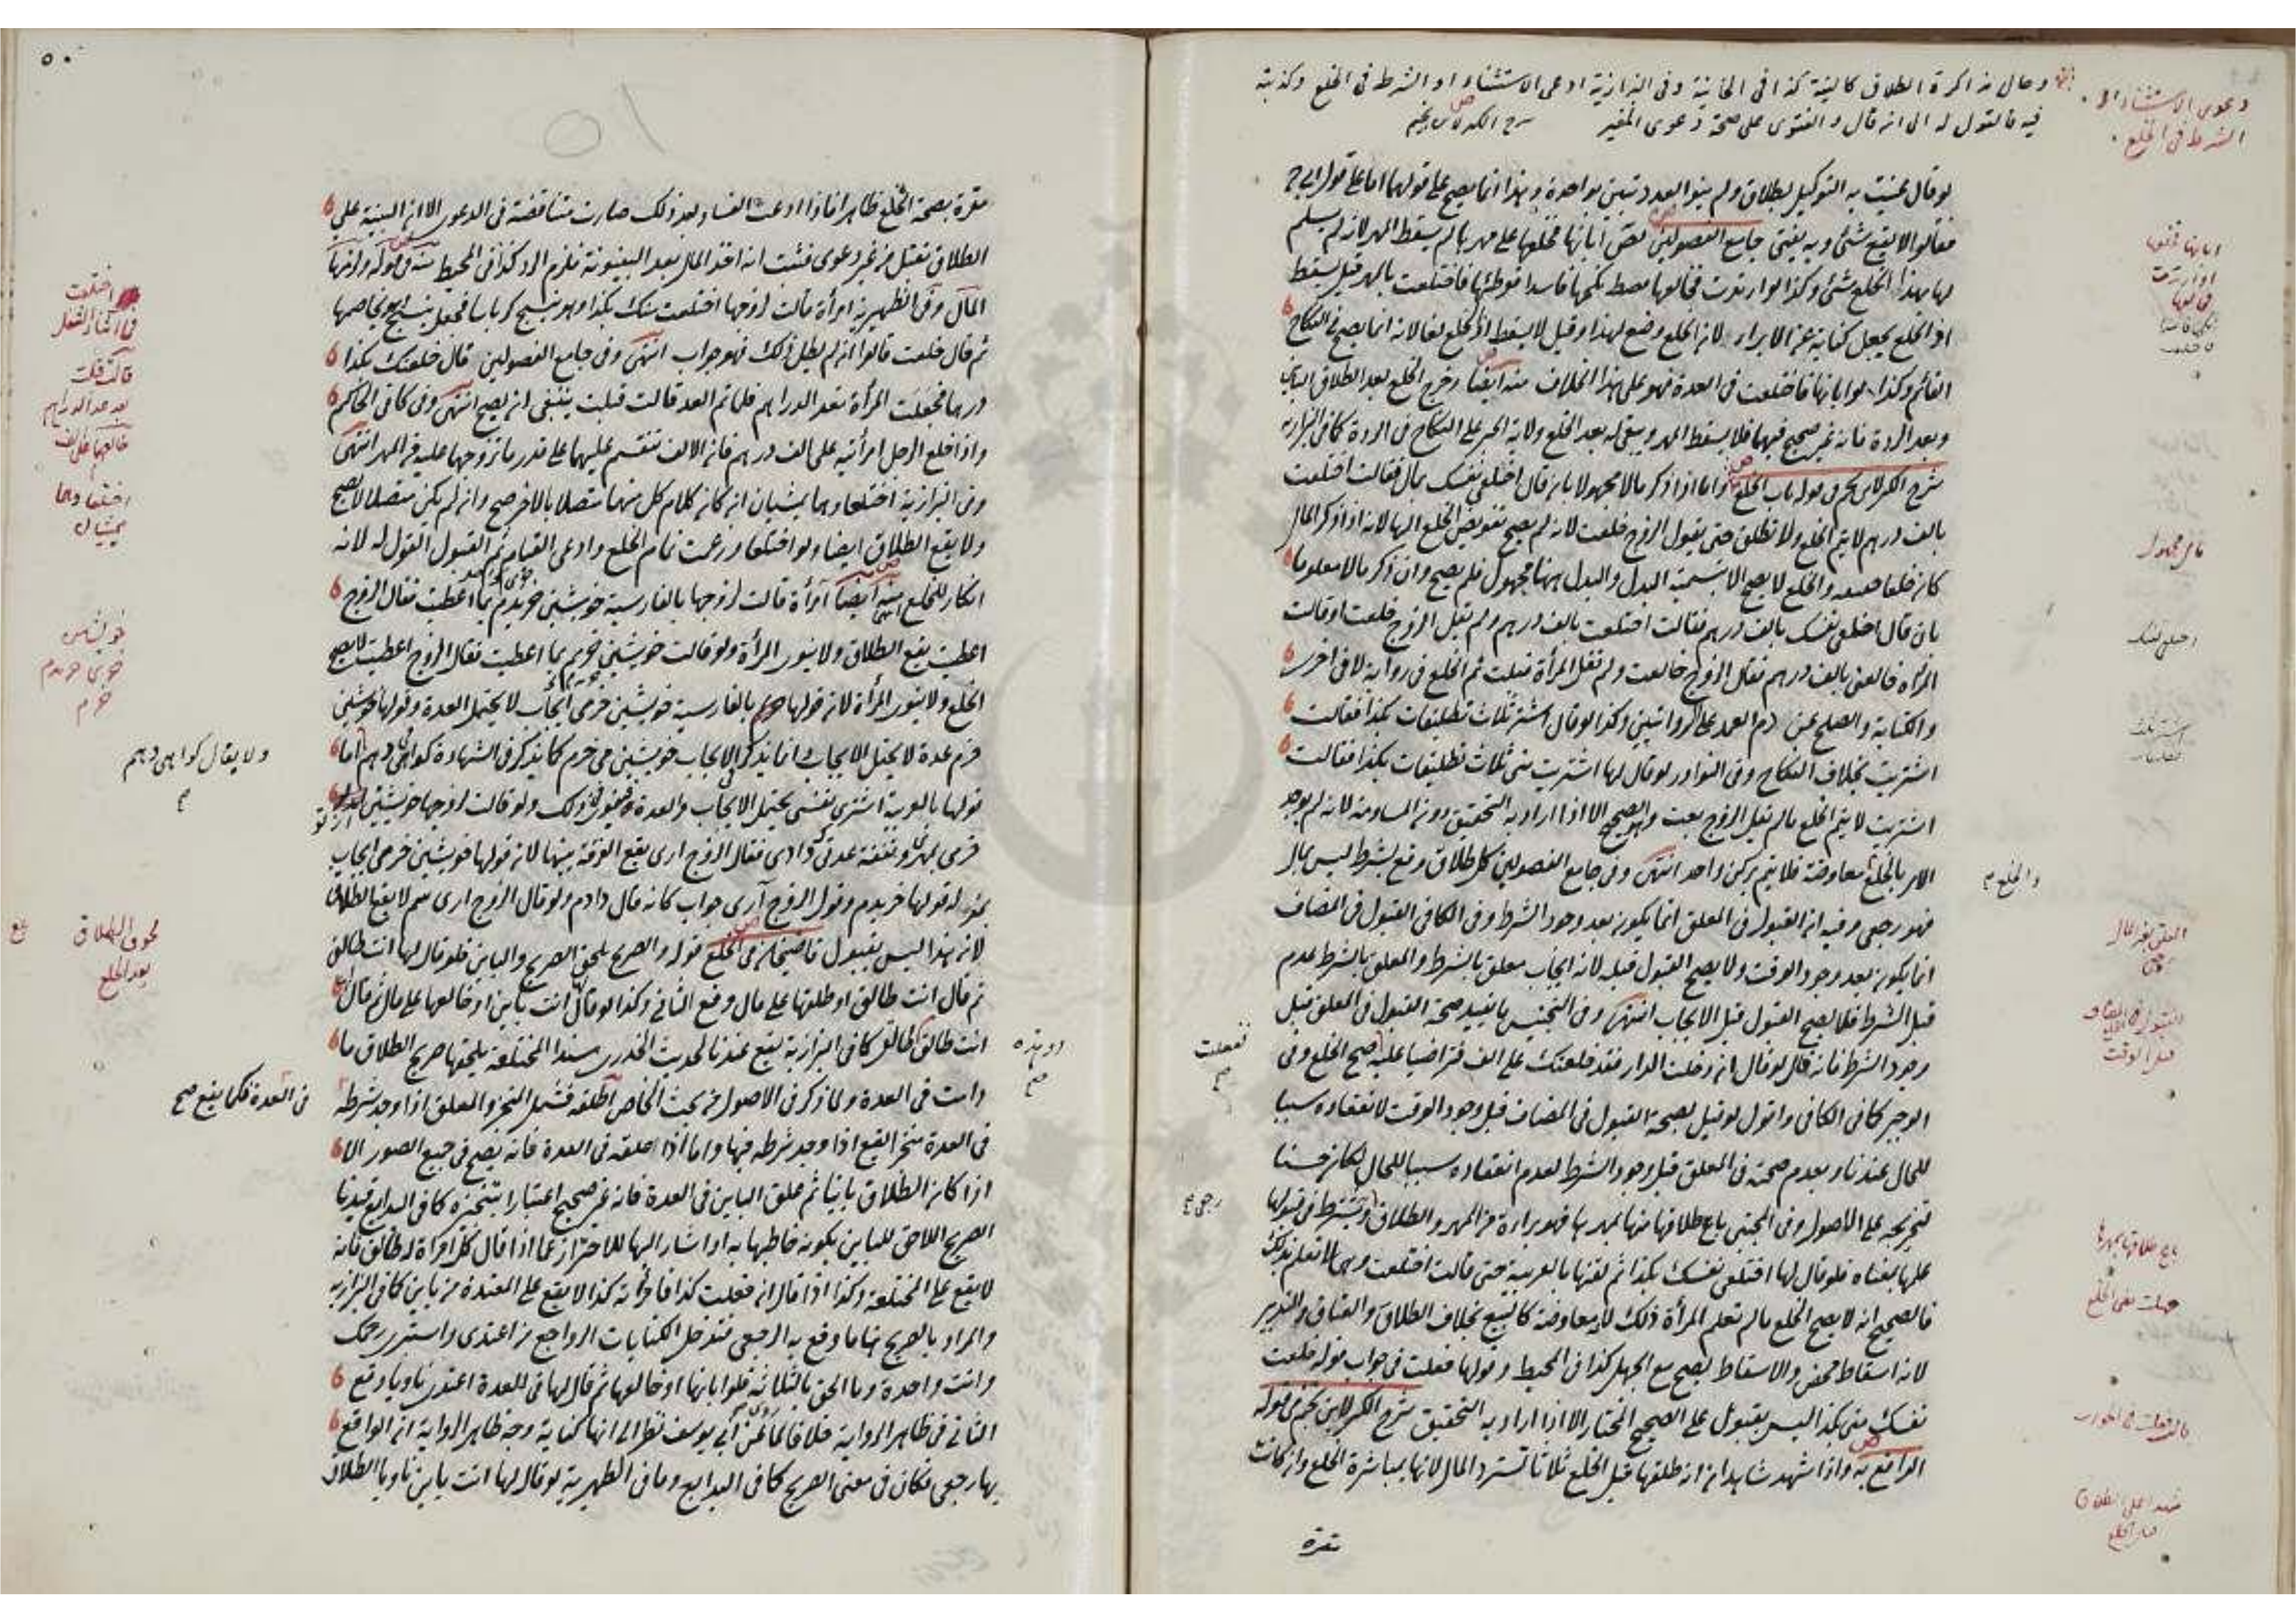 وحال مذاكرة الطلاق كالنية كذا في الخانية وفي البزازية ادعى الاستثناء او الشرط في الخلع وكذبته
فيه فالقول له الى ان قال والفتوى على صحة دعوى المغير
دعوى الاستثناء او
الشرط في الخلع
لو قال عنيت به التوكيل بطلاق ولم ينو العدد تبين بواحدة وهذا انما يصح على قولهما اما على قول ابي ح
فقالوا لا يقع شئ وبه يفتى جامع الفصولين ابانها فخلعها على مهرها لم يسقط المهر لانه لم يسلم
لها بهذا الخلع شئ وكذا لو ارتدت فخالعها نكحها فاسدا فوطئها فاختلعت بالمهر قيل يسقط
اذ الخلع يجعل كناية عن الابراء لانه الخلع وضع لهذا وقيل لا يسقط اذ الخلع لغا لانه انما يصح في النكاح
القائم وكذا لو ابانها فاختلعت في العدة فهو على هذا الخلاف منه ايضا وخرج الخلع بعد الطلاق الباين
وبعد الردة فانه غير صحيح فيهما فلا يسقط المهر ويبقى له بعد الخلع ولاية الجبر على النكاح في الردة كما في البزازية
شرح الكنز لابن نجيم من قوله باب الخلع واما اذا ذكر مالا مجهولا بان قال اختلعي نفسك بمال فقالت اختلعت
بالف درهم لا يتم الخلع ولا تطلق حتى يقول الزوج خلعت لانه لم يصح تفويض الخلع اليها لانه اذا ذكر المال
كان خلعا حقيقة والخلع لا يصح الا بتسمية البدل والبدل ههنا مجهول فلم يصح وان ذكر مالا معلوما
بان قال اخلعي نفسك بالف درهم فقالت اختلعت بالف درهم ولم يقل الزوج خلعت او قالت
المرأة خالعني بالف درهم فقال الزوج خالعت ولم تقل المرأة قبلت تم الخلع في رواية لا في اخرى
والكتابة والصلح عن دم العمد على الروايتين وكذا لو قال اشتر ثلاث تطليقات بكذا فقالت
اشتريت بخلاف النكاح وفي النوادر لو قال لها اشتريت مني ثلاث تطليقات بكذا فقالت
اشتريت لا يتم الخلع ما لم يقل الزوج بعت وهو الصحيح الا اذا اراد به التحقيق دون المساومة لانه لم يوجد
الامر بالخلع معاوضة فلا يتم بركن واحد انتهى وفي جامع الفصولين كل طلاق وقع بشرط ليس بمال
فهو رجعي وفيه ان القبول في المعلق انما يكون بعد وجود الشرط وفي الكافي القبول في المضاف
انما يكون بعد وجود الوقت ولا يصح القبول قبله لانه ايجاب معلق بالشرط والمعلق بالشرط عدم
قبل الشرط فلا يصح القبول قبل الايجاب انتهى وفي التجنيس ما يفيد صحة القبول في المعلق قبل
وجود الشرط فانه قال لو قال ان دخلت الدار فقد خلعتك على الف فتراضيا عليه صح الخلع وفي
الوجيز كما في الكافي واقول لو قيل بصحة القبول في المضاف قبل وجود الوقت لانعقاده سببا
للحال عندنا وبعدم صحته في المعلق قبل وجود الشرط لعدم انعقاده سببا للحال لكان حسنا
تخريجه على الاصول وفي المجتبى باع طلاقها منها بمهرها فهو براءة من المهر والطلاق ويشترط في قبولها
علمها بمعناه فلو قال لها اختلعي نفسك بكذا ثم لقنها بالعربية حتى قالت اختلعت وهي لا تعلم بذلك
فالصحيح انه لا يصح الخلع ما لم تعلم المرأة ذلك لانه معاوضة كالبيع بخلاف الطلاق والعتاق والتدبير
لانه اسقاط محض والاسقاط يصح مع الجهل كذا في المحيط وقولها فعلت في جواب قوله خلعت
نفسك مني بكذا ليس بقبول على الصحيح المختار الا اذا اراد به التحقيق شرح الكنز لابن نجيم من قوله
الواقع به واذا شهد شاهدان انه طلقها قبل الخلع ثلاثا تسترد المال لانها بمباشرة الخلع وان كانت
مقرة
اختلعي نفسك
والخلع م
فعلت
رجعي
باع طلاقها بمهرها
جهلت معنى الخلع
٥٠
مقرة بصحة الخلع ظاهرا فاذا ادعت الفساد بعد ذلك صارت متناقضة في الدعوى الا ان البينة على
الطلاق تقبل من غير دعوى فثبت انه اخذ المال بعد البينونة فلزم الرد كذا في المحيط من قوله ولزمها
المال وفي الظهيرية امرأة قالت لزوجها اختلعت منك بكذا وهو ينسج كرباسا فجعل ينسج ويخاصمها
ثم قال خلعت قالوا ان لم يطل ذلك فهو جواب انتهى وفي جامع الفصولين قال خلعتك بكذا
درهما فجعلت المرأة تعد الدراهم فلما تم العد قالت قبلت ينبغي ان يصح انتهى وفي كافي الحاكم
واذا خلع الرجل امرأتيه على الف درهم فان الالف تنقسم عليهما على قدر ما تزوجها عليه من المهر انتهى
وفي البزازية اختلعا وهما يمشيان ان كان كلام كل منهما متصلا بالاخر صح وان لم يكن متصلا لا يصح
ولا يقع الطلاق ايضا ولو اختلعا وزعمت تمام الخلع وادعى القيام ثم القبول القول له لانه
انكار للخلع منه ايضا امرأة قالت لزوجها بالفارسية خويشتن خريدم بما اعطيت فقال الزوج
اعطيت يقع الطلاق ولا ينوى المرأة ولو قالت خويشتن خرم بما اعطيت فقال الزوج اعطيت لا يصح
الخلع ولا ينوى المرأة لان قولها خرم بالفارسية خويشتن خرمي ايجاب لا يحتمل العدة وقولها خويشتن
خرم عدة لا يحتمل الايجاب وانما يذكر للايجاب خويشتن مي خرم كما يذكر في الشهادة كواهي دهم اما
قولها بالعربية اشتري نفسي يحتمل الايجاب والعدة فينوى ذلك ولو قالت لزوجها خويشتن
خرمي بمهر ونفقة عدتي دادي فقال الزوج اري يقع الفرقة بينهما لان قولها خويشتن خرمي ايجاب
بمنزلة قولها خريدم وقول الزوج آري جواب كانه قال دادم ولو قال الزوج اري هم لا يقع الطلاق
لان هذا ليس بقبول قاضيخان من الخلع قوله والصريح يلحق الصريح والباين فلو قال لها انت طالق
ثم قال انت طالق او طلقها على مال وقع الثاني وكذا لو قال لها انت باين او خالعها على مال ثم قال
انت طالق كما في البزازية يقع عندنا لحديث الخدري مسندا المختلعة يلحقها صريح الطلاق ما
دامت في العدة ولما ذكر في الاصول من بحث الخاص اطلقه فشمل المنجز والمعلق اذا وجد شرطه
في العدة اذا وجد شرطه فيها واما اذا علقه في العدة فانه يصح في جميع الصور الا
اذا كان الطلاق باينا ثم علق الباين في العدة فانه غير صحيح اعتبارا بتنجيزه كما في البدايع قيدنا
الصريح اللاحق للباين بكونه خاطبها به او اشار اليها للاحتراز عما اذا قال كل امرأة له طالق فانه
لا يقع على المختلعة وكذا اذا قال ان فعلت كذا فامرأته كذا لا يقع على المعتدة من باين كما في البزازية
والمراد بالصريح هنا ما وقع به الرجعي فتدخل الكنايات الرواجع من اعتدي واستبري رحمك
وانت واحدة وما الحق بالثلاثة فلو ابانها او خالعها ثم قال لها في العدة اعتدي ناويا وقع
الثاني في ظاهر الرواية خلافا لما عن ابي يوسف نظرا الى انها كناية وجه ظاهر الرواية ان الواقع
بها رجعي فكان في معنى الصريح كما في البدايع وما في الظهيرية لو قال لها انت باين ناويا الطلاق
اختلعت
قالت قبلت
بعد عد الدراهم
اختلعا وهما
يمشيان
ولا يقال كواهي دهم
لحوق الطلاق
بعد الخلع
في العدة فكما يقع صح